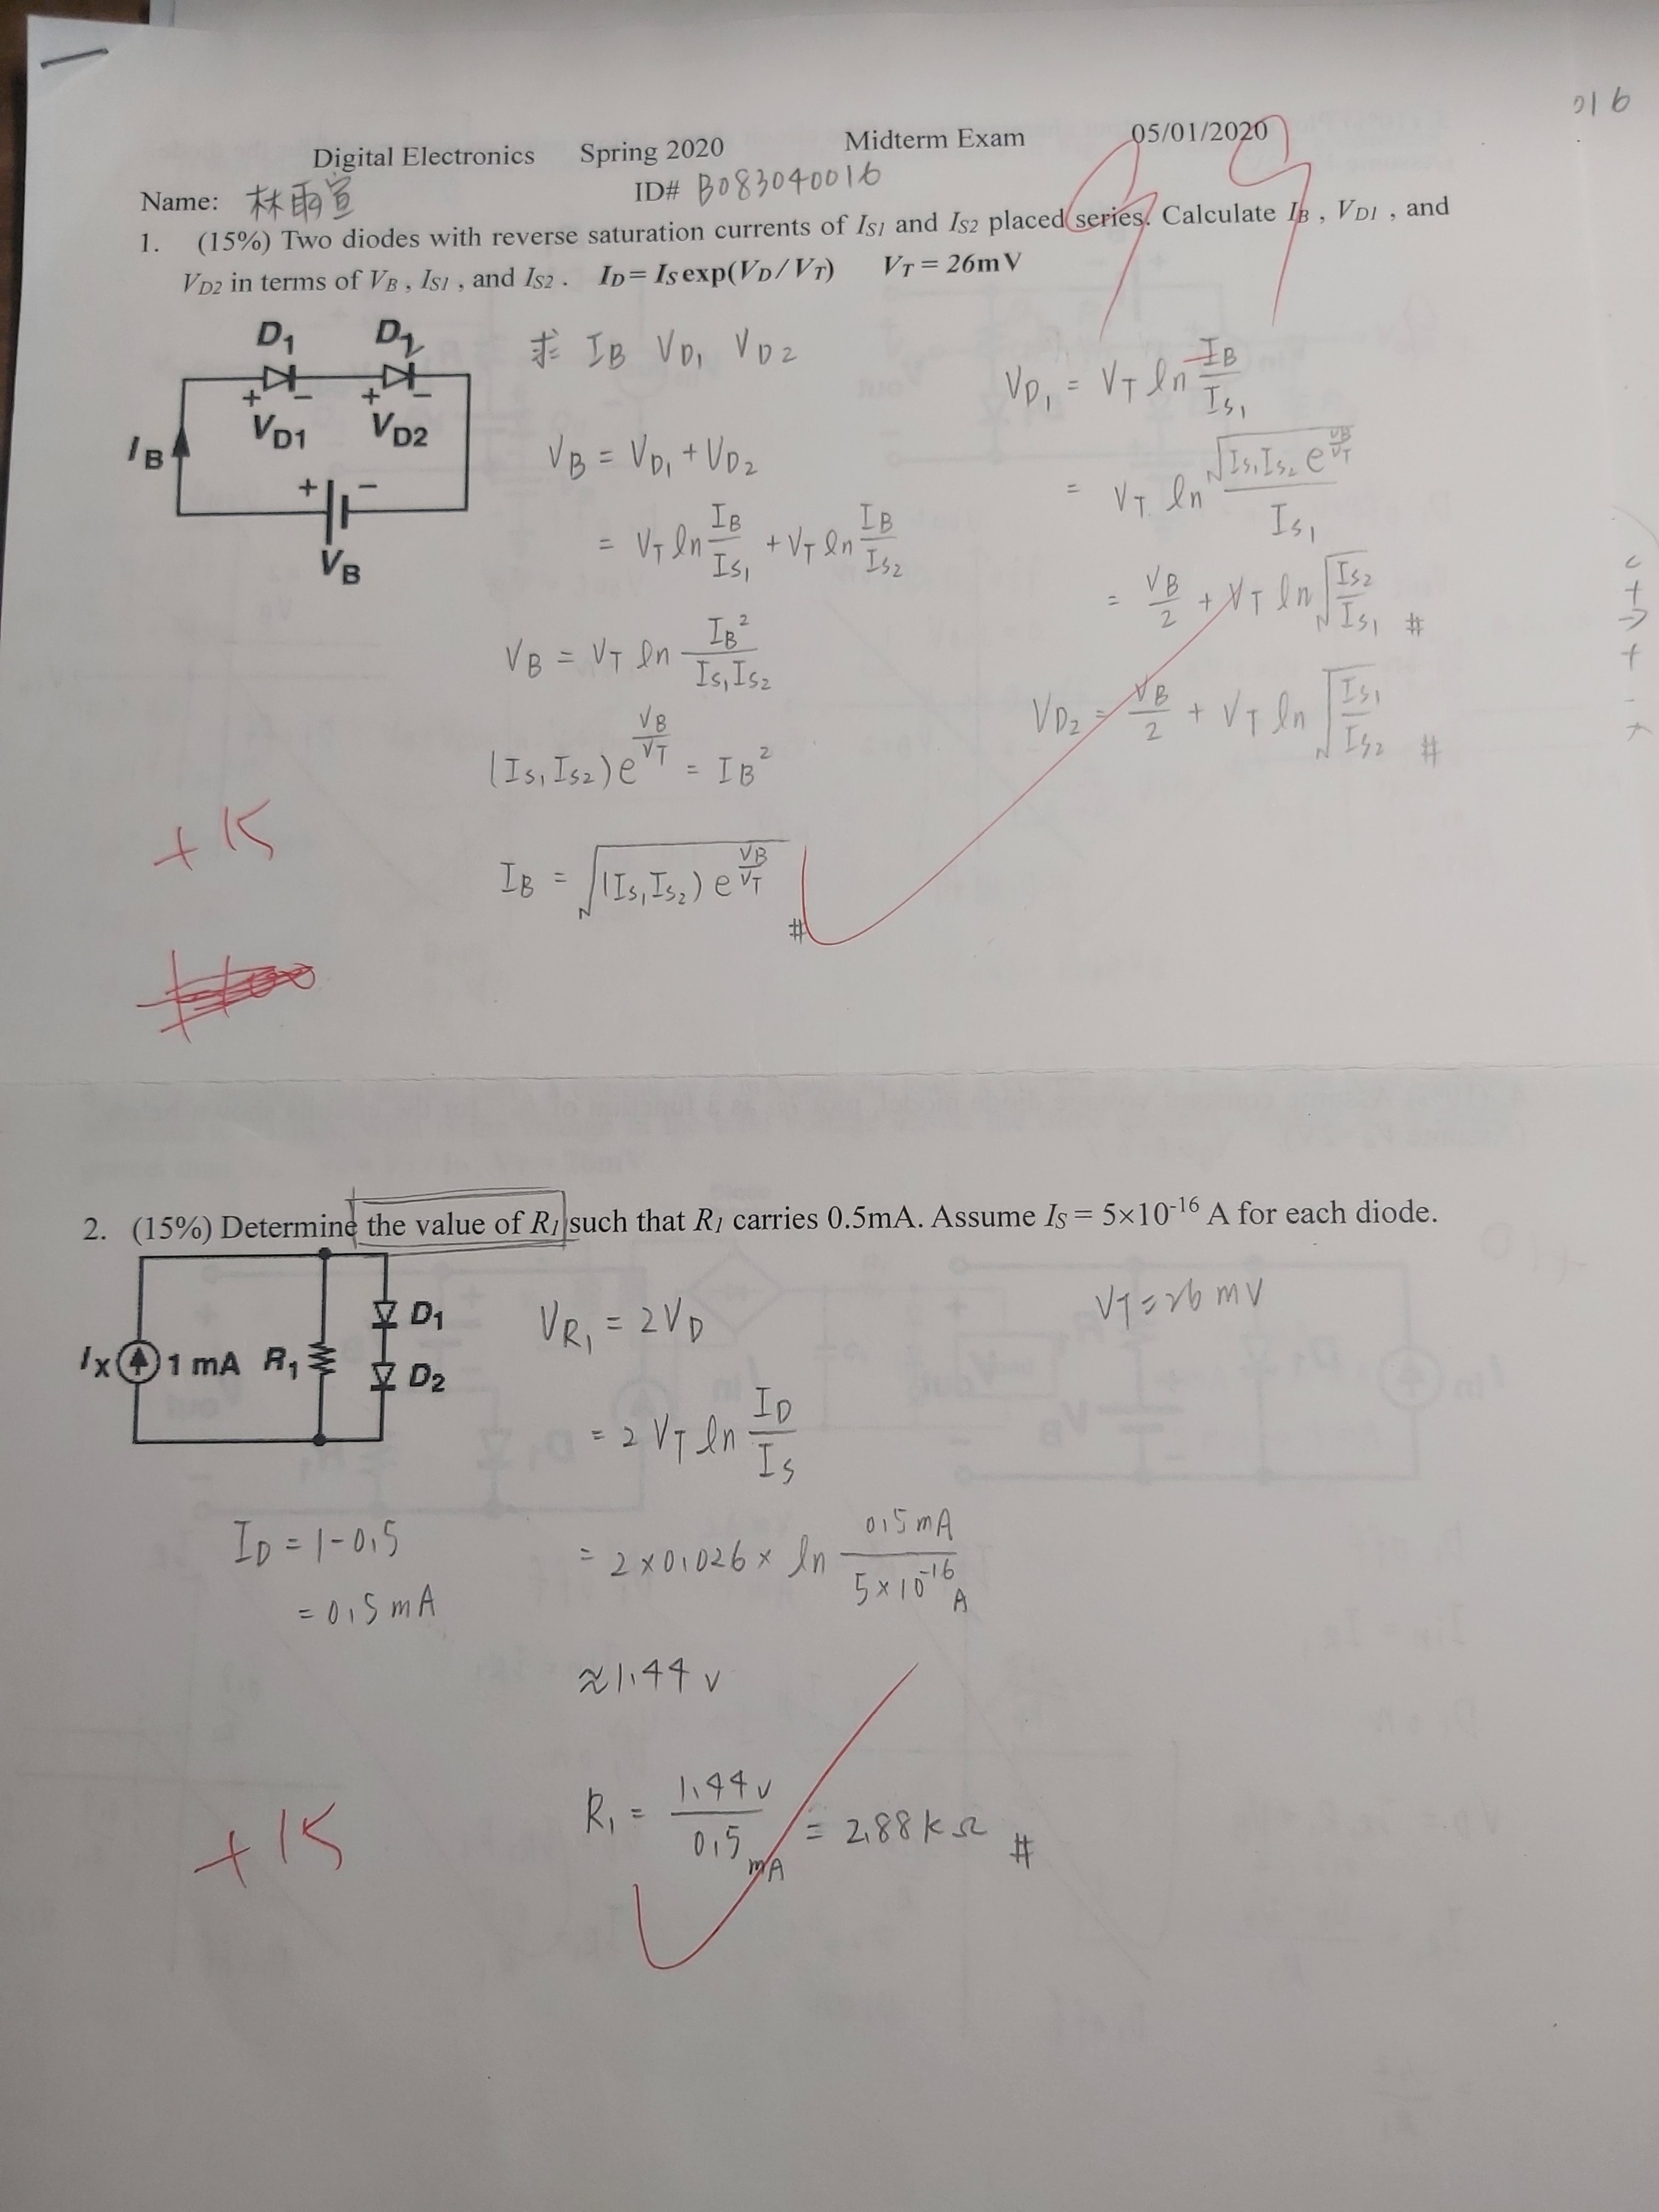 016
Digital Electronics Spring 2020 Midterm Exam 05/01/2020
99
Name: 林雨萱 ID# B083040016
1. (15%) Two diodes with reverse saturation currents of IS1 and IS2 placed series. Calculate IB , VD1 , and
VD2 in terms of VB , IS1 , and IS2 . ID= IS exp(VD/VT) VT = 26mV
D1 D2
+ − + −
VD1 VD2
IB
+ −
VB
求 IB VD1 VD2
VB = VD1 + VD2
= VT ln IB/IS1 + VT ln IB/IS2
VB = VT ln IB²/IS1IS2
(IS1IS2) e^(VB/VT) = IB²
IB = √((IS1IS2) e^(VB/VT)) #
VD1 = VT ln IB/IS1
= VT ln √(IS1IS2 e^(VB/VT))/IS1
= VB/2 + VT ln √(IS2/IS1) #
VD2 = VB/2 + VT ln √(IS1/IS2) #
+15
2. (15%) Determine the value of R1 such that R1 carries 0.5mA. Assume IS = 5×10^-16 A for each diode.
D1
IX 1 mA R1
D2
VT=26 mV
VR1 = 2VD
= 2 VT ln ID/IS
ID = 1-0.5
= 0.5 mA
= 2×0.026× ln 0.5mA/5×10^-16 A
≈1.44 v
R1 = 1.44v/0.5mA = 2.88 kΩ #
+15